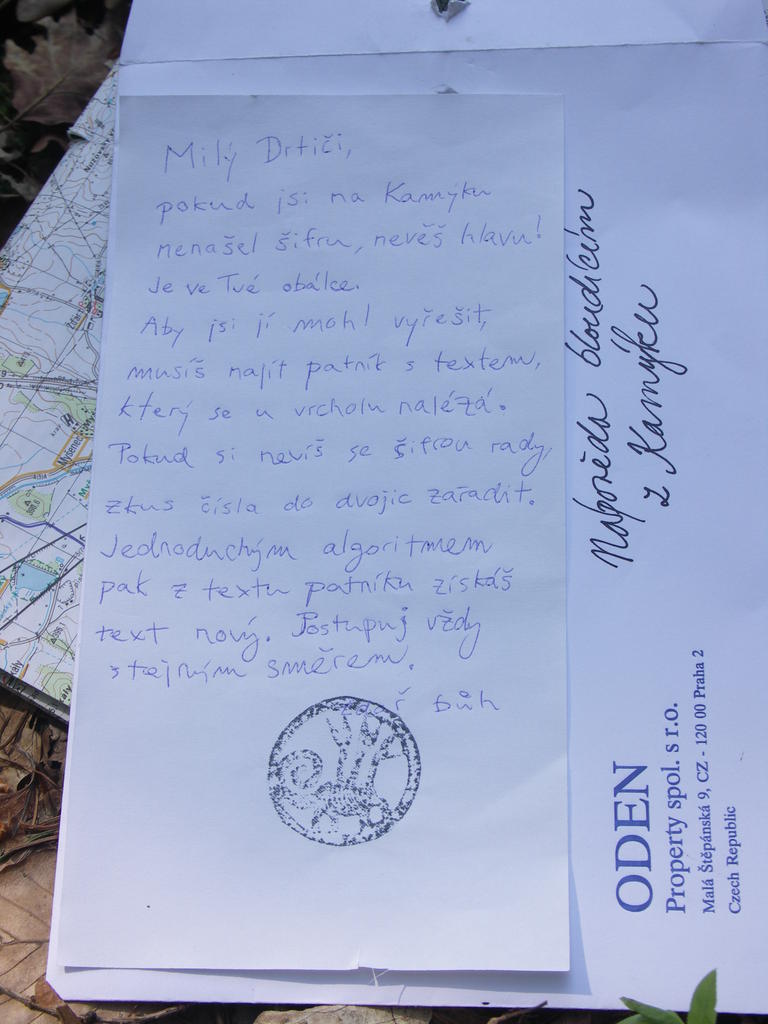 Milý Drtiči,
pokud jsi na Kamýku
nenašel šifru, nevěš hlavu!
Je ve Tvé obálce.
Aby jsi jí mohl vyřešit,
musíš najít patník s textem,
který se u vrcholu nalézá.
Pokud si nevíš se šifrou rady,
zkus čísla do dvojic zařadit.
Jednoduchým algoritmem
pak z textu patníku získáš
text nový. Postupuj vždy
stejným směrem.
Bůh
Nápověda bloudícím
z Kamýku
ODEN
Property spol. s r.o.
Malá Štěpánská 9, CZ - 120 00 Praha 2
Czech Republic